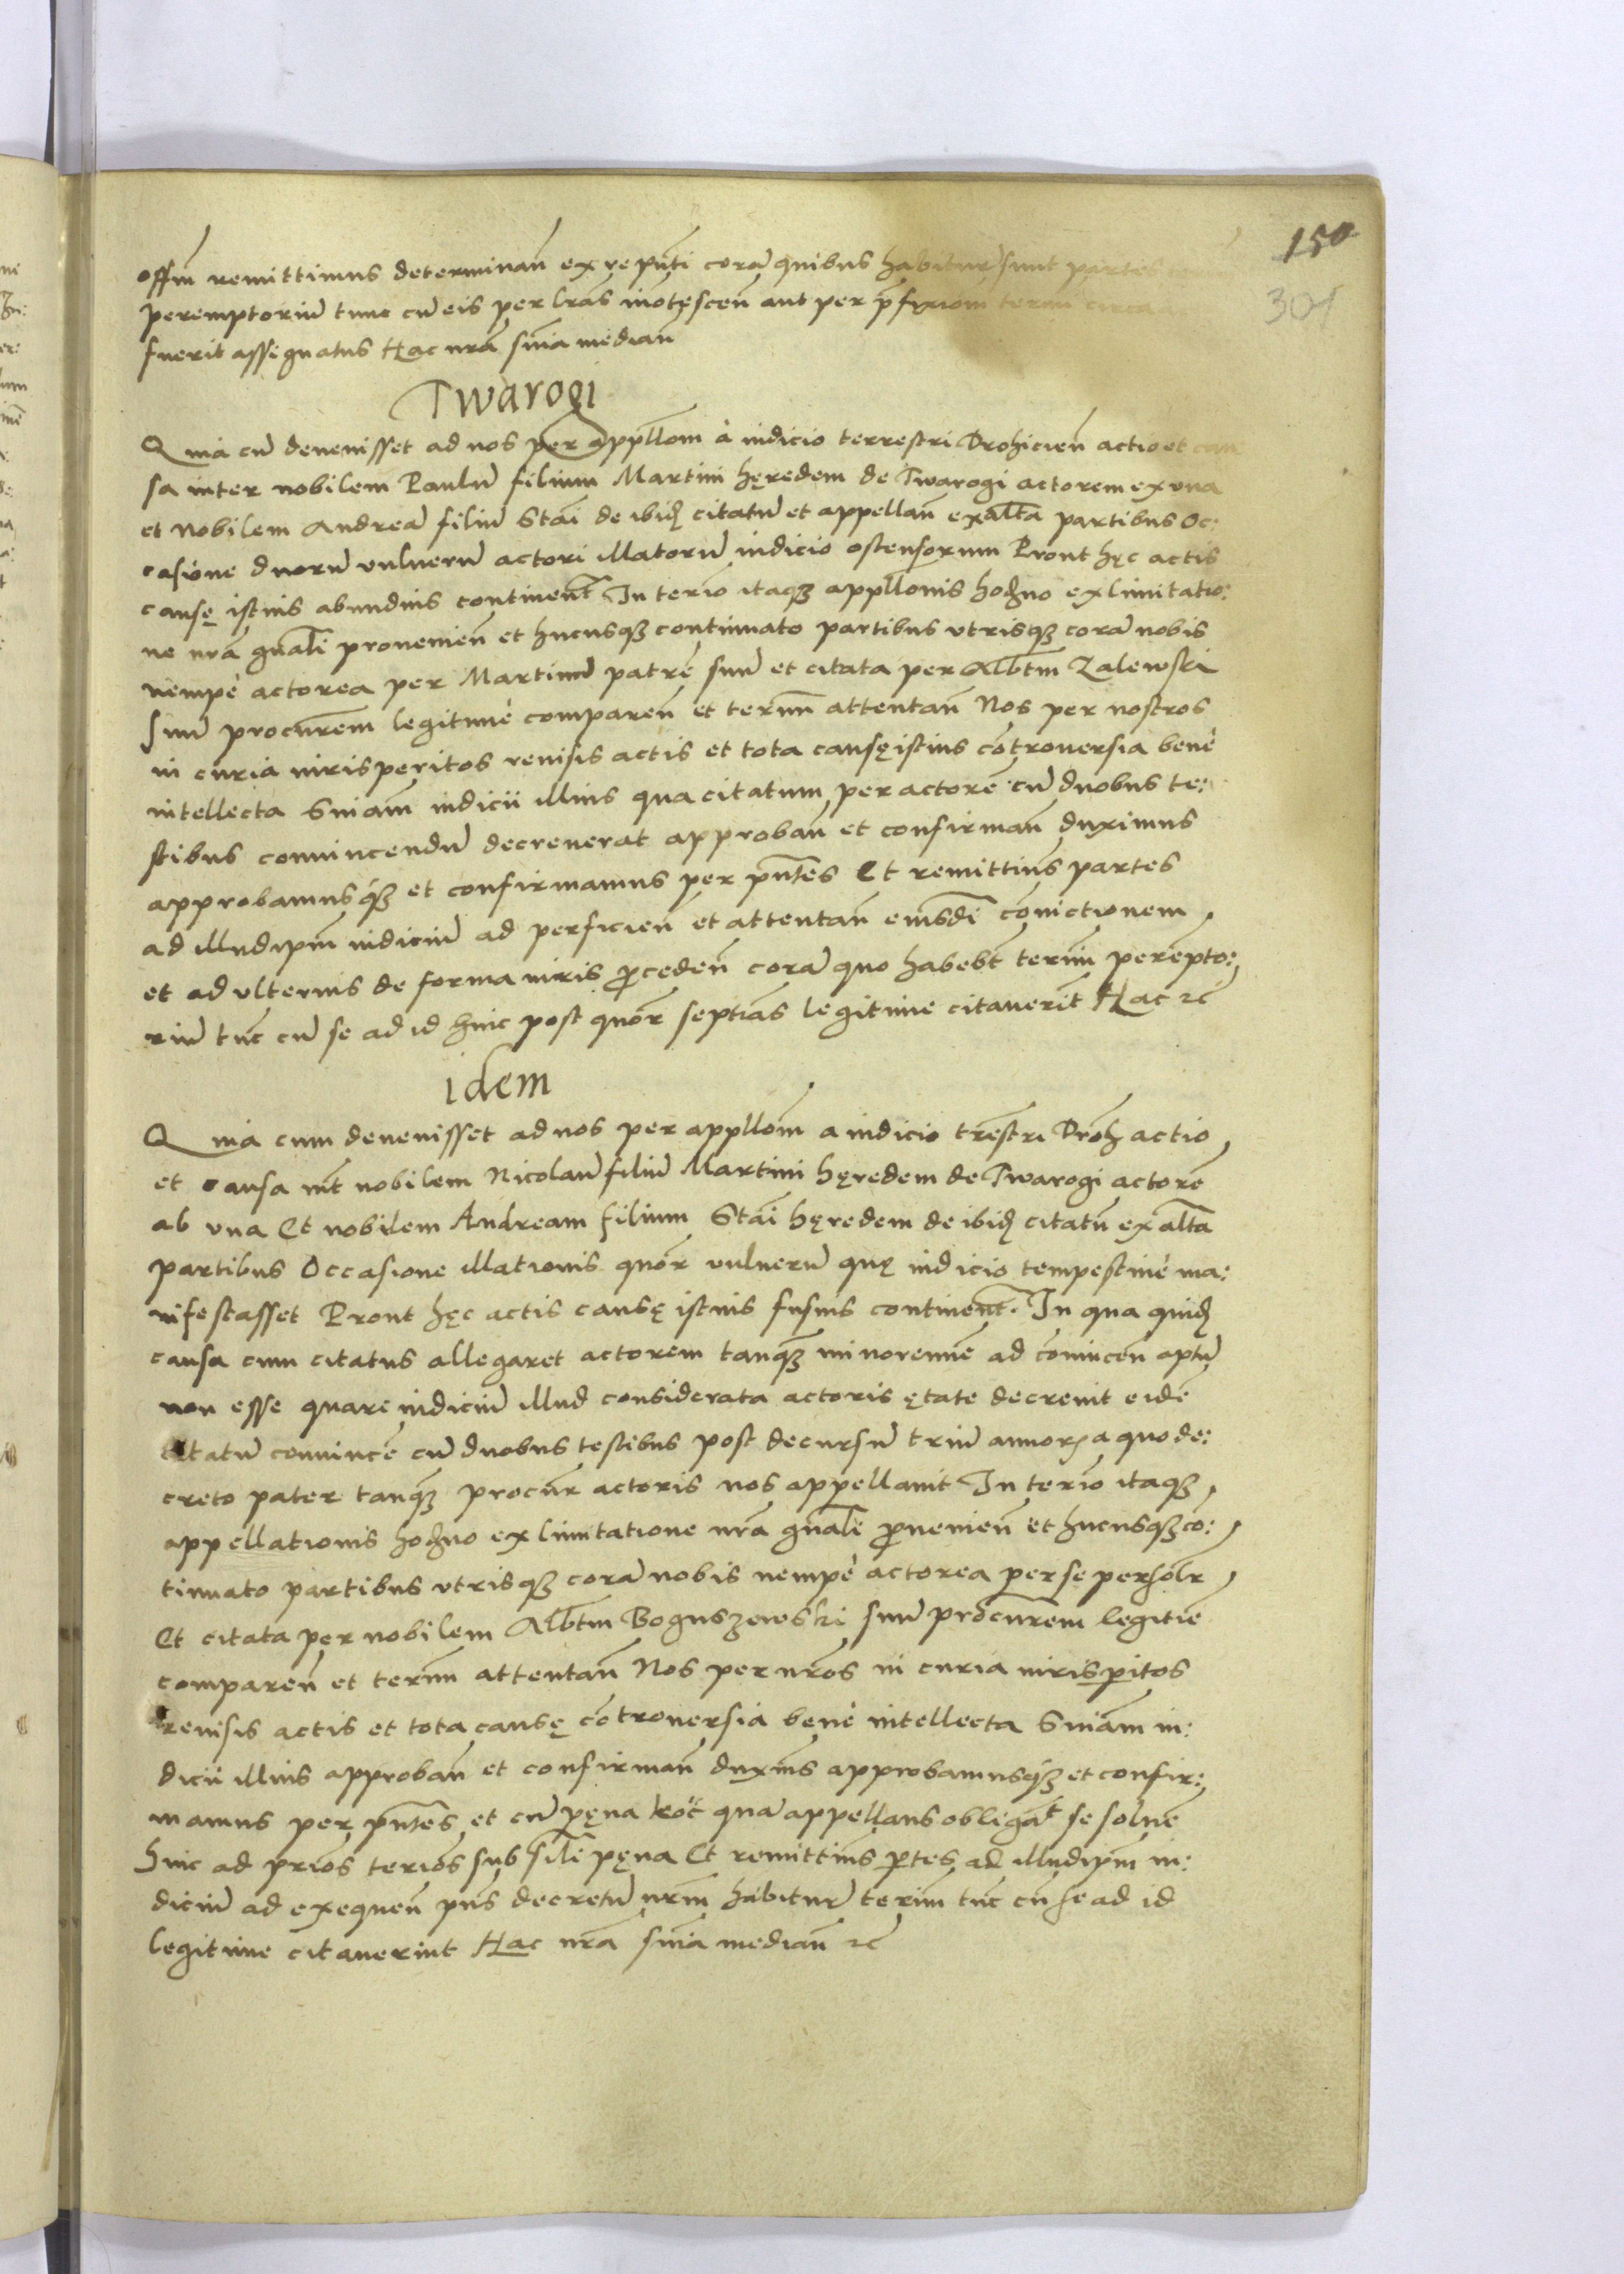 150
301
offm̃ remittimus determinañ ex reputi corã quibus habiturĩ sunt partes
peremptoriũ tunc cũ eis per lrãs inotęsceñ aut per p̃fixiom̃ termi
fuerit assignatus Hac nrã sniã mediañ
Twarogi
Quia cũ devenisset ad nos per appllom̃ à iudicio terrestri Drohicieñ actio et cau
sa inter nobilem Paulũ filium Martini hęredem de Twarogi actorem ex una
et Nobilem Andreã filiũ Stãi de ibid̃ citatũ et appellañ ex altã partibus Oc:
casione duorũ vulnerũ actori illatorũ iudicio ostensorum Prout hęc actis
causę istius abundius continent̃ In terĩo itaq3 appllonis hodĩno ex limitatio:
ne nrã gnãli provenieñ et hucusq3 continuato partibus utrisq3 corã nobis
nempè actorea per Martinũ patrẽ suũ et citata per Albtm̃ Zalewski
suũ procurẽm legitimè compareñ et term̃ attentañ Nos per nostros
in curia iurisperitos revisis actis et tota causę istius cõtroversia benè
intellecta Sniãm iudicii illius qua citatum per actorẽ cũ duobus te:
stibus convincendũ decreverat approbañ et confirmañ duximus
approbamusq3 et confirmamus per pñtes Et remittimũs partes
ad illud ipm̃ iudiciũ ad perficieñ et attentañ eiusdẽ cõvictionem
et ad ulterius de forma iuris p̃cedeñ corã quo habebt̃ term̃ perẽpto:
riũ tũc cũ se ad id hinc post quor̃ septiãs legitime citaverĩt Hac 2c̃
idem
Quia cum devenisset ad nos per appllom̃ a iudicio trẽstri Droh̃ actio
et causa int̃ nobilem Nicolaũ filiũ Martini hęredem de Twarogi actorẽ
ab una Et nobilem Andream filium Stãi hęredem de ibid̃ citatũ ex altã
partibus Occasione illationis quor̃ vulnerũ quę iudicio tempestivè ma:
nifestasset Prout hęc actis causę istius fusius continent̃. In qua quid̃
causa cum citatus allegaret actorem tanq̃3 minorennẽ ad cõvinceñ aptũ
non esse quare iudiciũ illud considerata actoris ętate decrevit eidẽ
citatũ convincẽ cũ duobus testibus post decursũ triũ annor̃ a quo de:
creto pater tanq̃3 procur̃ actoris nos appellavit In terĩo itaq3
appellationis hodĩno ex limitatione nrã gnãli p̃venieñ et hucusq3 cõ:
tinuato partibus utrisq3 corã nobis nempè actorea per se persolr̃
Et citata per nobilem Albtm̃ Boguszewski suũ procurẽm legitiẽ
compareñ et term̃ attentañ Nos per nrõs in curia iurisperitos
revisis actis et tota causę cõtroversia benè intellecta Sniãm iu:
dicii illius approbañ et confirmañ duxim̃s approbamusq3 et confir:
mamus per pñtes et cũ pęna koc̃ qua appellans obligãt se solvẽ
hinc ad priõs teriõs sub sili pęna Et remittim̃s p̃tes ad illud ipm̃ iu:
diciũ ad exequeñ pñs decretũ nrm̃ habitur̃ term̃ tũc cũ se ad id
legitime citaverint Hac nrã sniã mediañ 2c̃